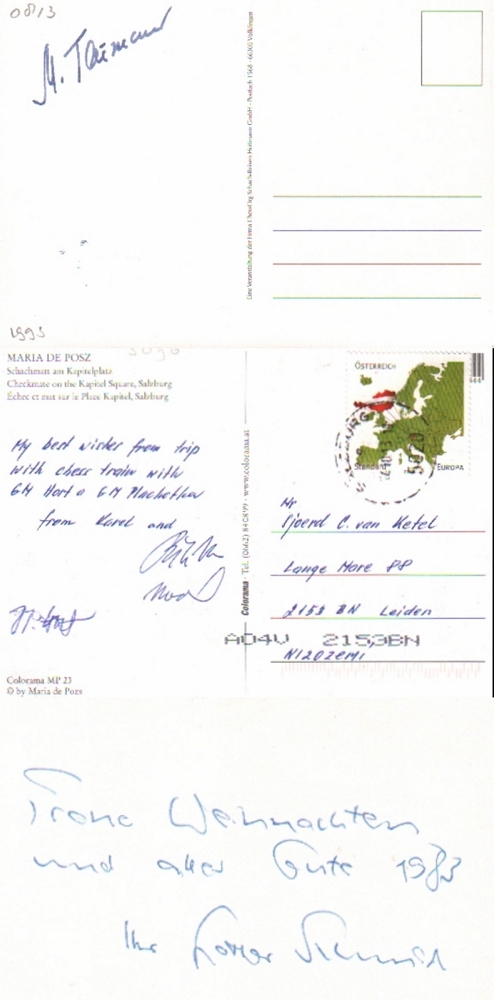 0813
M. Taimanov
Eine Veranstaltung der Firma Chessorg Schach-Reisen Hofmann GmbH · Postfach 1568 · 66305 Völklingen
1995
MARIA DE POSZ
Schachmatt am Kapitelplatz
Checkmate on the Kapitel Square, Salzburg
Échec et mat sur le Place Kapitel, Salzburg
ÖSTERREICH
EUROPA
SALZBURG
5020
My best wishes from trip
with chess train with
GM Hort a GM Plachetka
from Karel and
Mr
Sjoerd C. van Ketel
Lange Mare 88
2153 BN Leiden
NIZOZEMI
A04V 2153BN
Colorama · Tel. (0662) 84 08 99 · www.colorama.at
Colorama MP 23
© by Maria de Posz
Frohe Weihnachten
und alles Gute 1983
Ihr Lothar Schmid